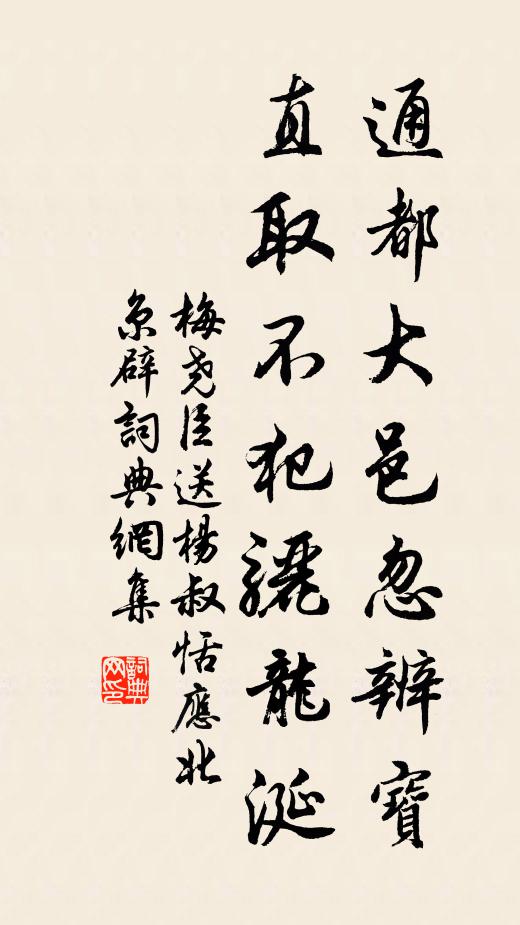 通都大邑忽辨寶
直取不犯驪龍涎
梅堯臣送楊叔恬應北
京辟詞典網集
詞典
网印